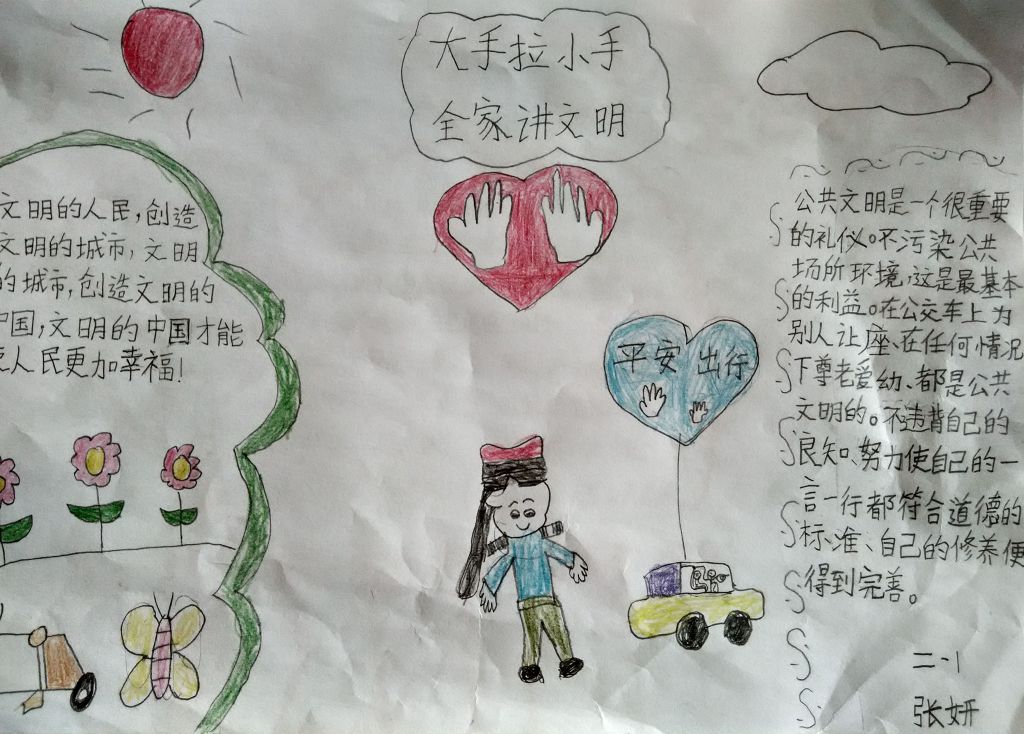 大手拉小手
全家讲文明
文明的人民,创造
文明的城市,文明
的城市,创造文明的
中国,文明的中国才能
人民更加幸福!
平安 出行
公共文明是一个很重要
的礼仪。不污染公共
场所环境,这是最基本
的利益。在公交车上为
别人让座、在任何情况
下尊老爱幼、都是公共
文明的。不违背自己的
良知、努力使自己的一
言一行都符合道德的
标准、自己的修养便
得到完善。
二.1
张妍